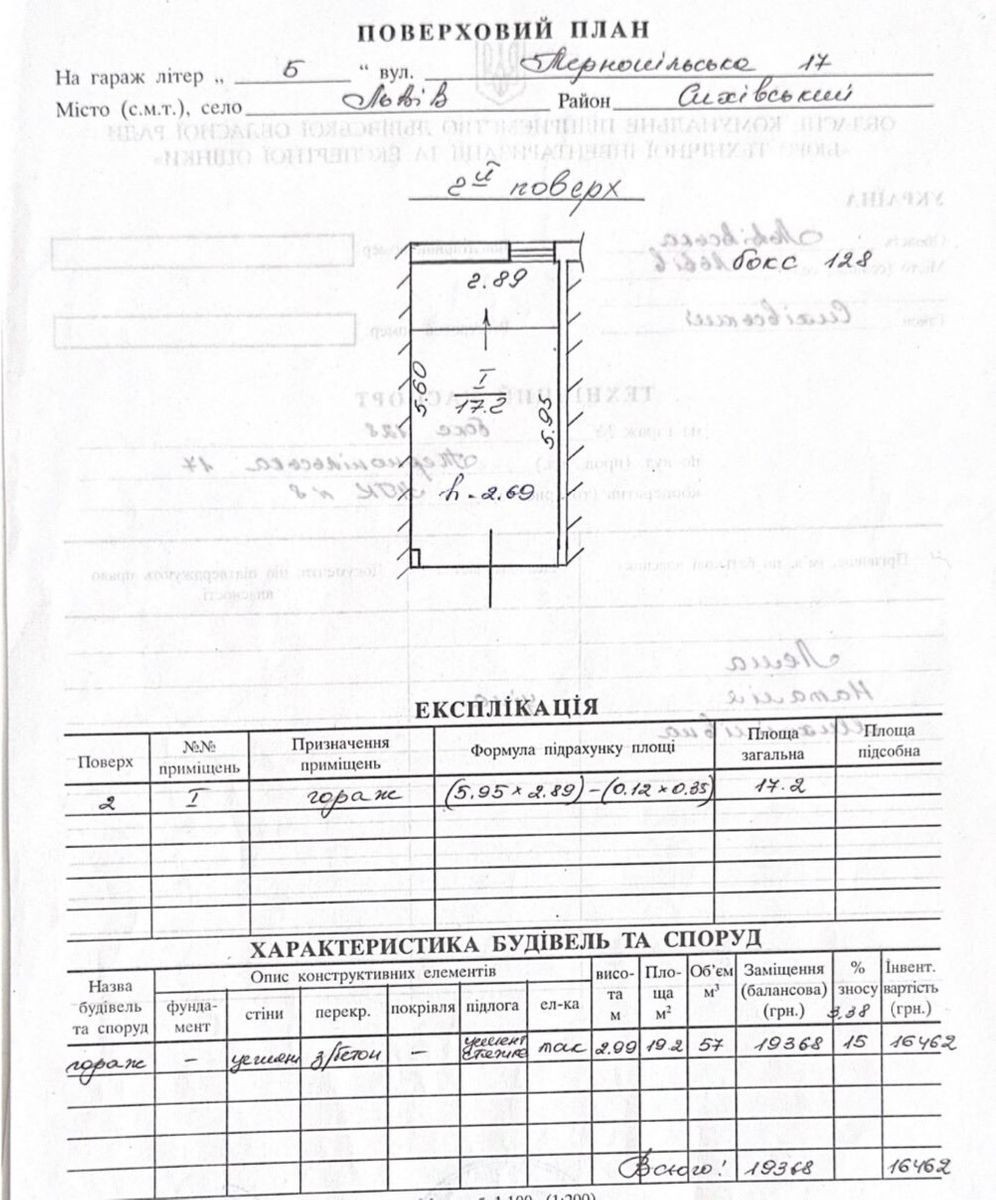 ПОВЕРХОВИЙ ПЛАН
На гараж літер „ Б “ вул. Тернопільська 17
Місто (с.м.т.), село Львів Район Сихівський
2й поверх
бокс 128
2.89
5.60
I
17.2
5.95
h - 2.69
ЕКСПЛІКАЦІЯ
Поверх №№ приміщень Призначення приміщень Формула підрахунку площі Площа загальна Площа підсобна
2 I гараж (5.95 × 2.89) – (0.12 × 0.35) 17.2
ХАРАКТЕРИСТИКА БУДІВЕЛЬ ТА СПОРУД
Назва будівель та споруд Опис конструктивних елементів висота м Площа м² Об'єм м³ Заміщення (балансова) (грн.) % зносу Інвент. вартість (грн.)
фундамент стіни перекр. покрівля підлога ел-ка 3,38
гараж – цеглян з/бетон – цемент стяжка так 2.99 19.2 57 19368 15 16462
Всього: 19368 16462